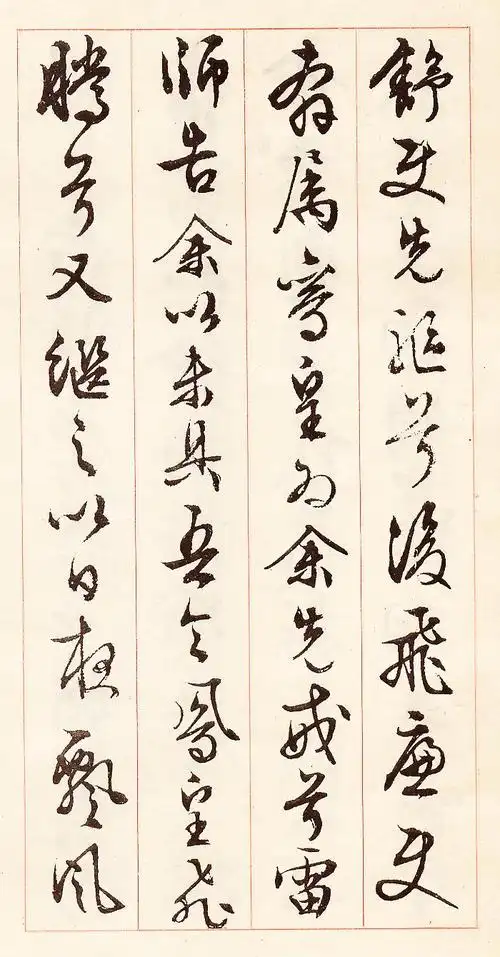 舒使先驅兮後飛廉使
奔屬鸞皇為余先戒兮雷
師告余以未具吾令鳳皇飛
騰兮又繼之以日夜飄風